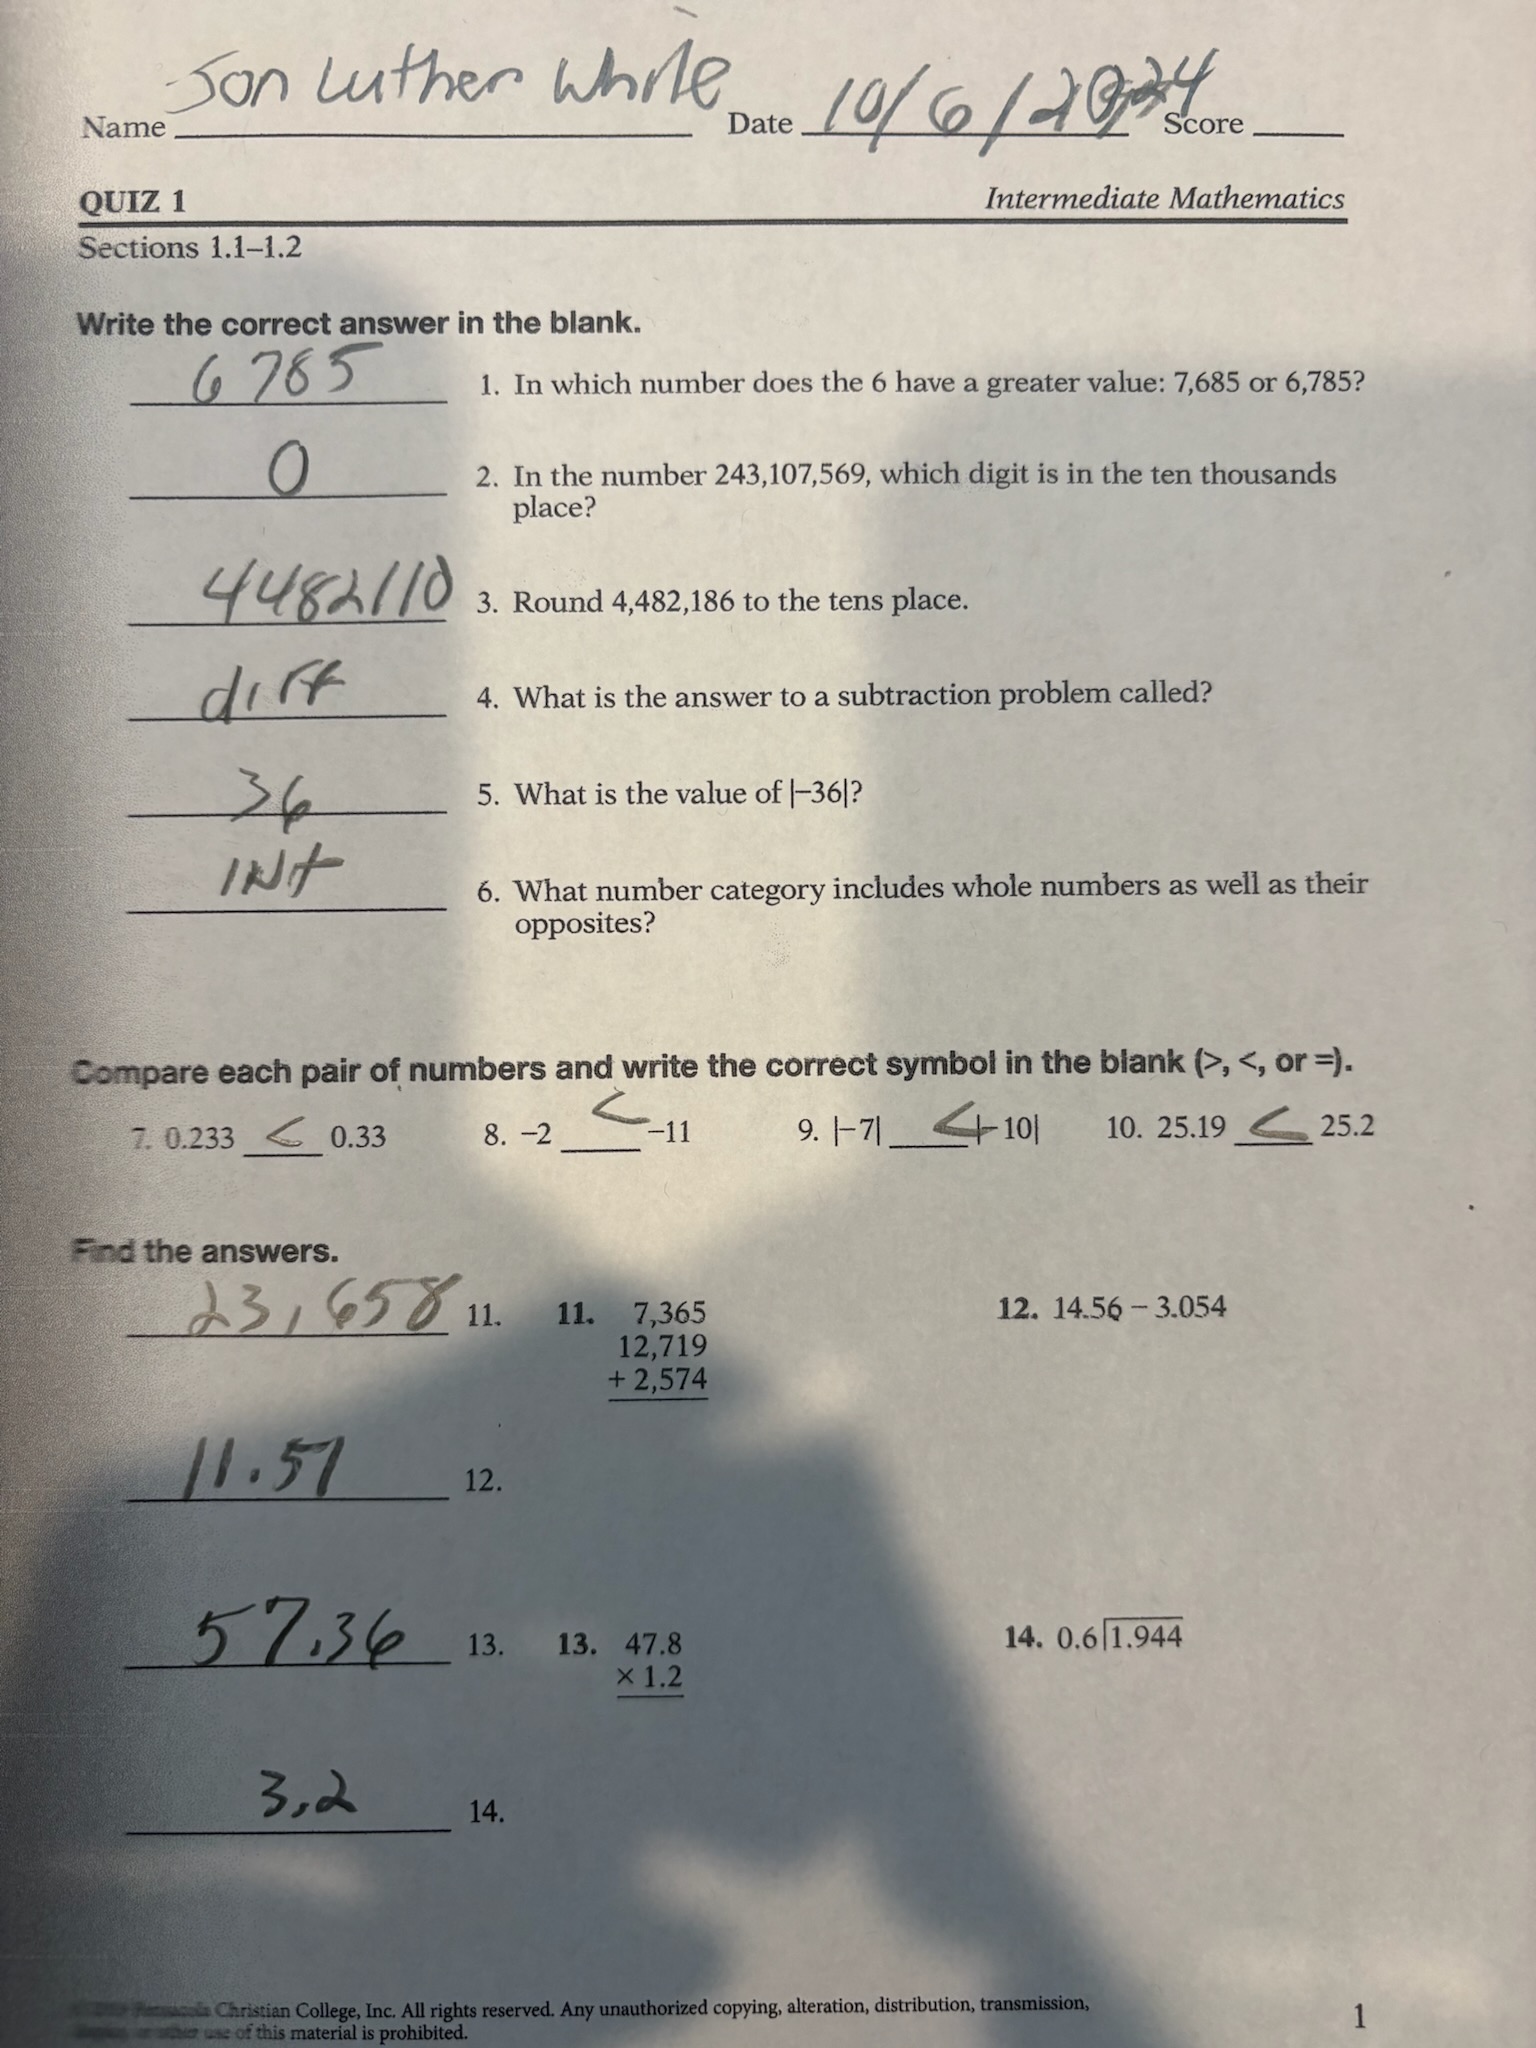 Name Jon Luther White Date 10/6/2024 Score
QUIZ 1 Intermediate Mathematics
Sections 1.1–1.2
Write the correct answer in the blank.
6785 1. In which number does the 6 have a greater value: 7,685 or 6,785?
0 2. In the number 243,107,569, which digit is in the ten thousands
place?
4482110 3. Round 4,482,186 to the tens place.
diff 4. What is the answer to a subtraction problem called?
36 5. What is the value of |–36|?
INt 6. What number category includes whole numbers as well as their
opposites?
Compare each pair of numbers and write the correct symbol in the blank (>, <, or =).
7. 0.233 < 0.33 8. –2 < –11 9. |–7| < |–10| 10. 25.19 < 25.2
Find the answers.
23,658 11. 11. 7,365 12. 14.56 – 3.054
12,719
+ 2,574
11.51 12.
57.36 13. 13. 47.8 14. 0.6 1.944
× 1.2
3.2 14.
Christian College, Inc. All rights reserved. Any unauthorized copying, alteration, distribution, transmission,
other use of this material is prohibited.
1